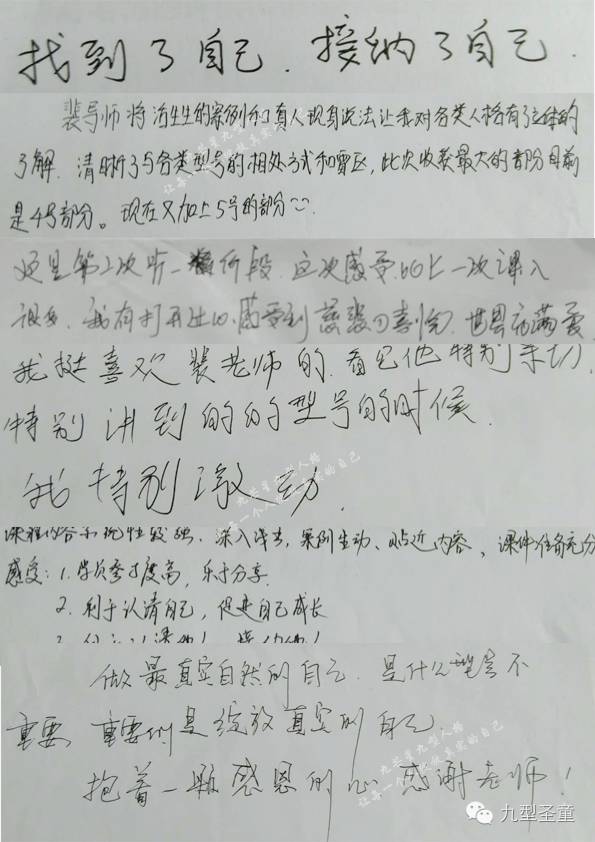 找到了自己.接纳了自己.
裴导师将活生生的案例和真人现身说法让我对各类人格有了立体的
了解.清晰了与各类型号的相处方式和雷区,此次收获最大的部分目前
是4号部分。现在又加上5号的部分
这是第2次听一阶段.这次感受比上一次课入
我挺喜欢裴老师的.看见他特别亲切.
特别讲到的的型号的时候.
我特别激动.
深入浅出,案例生动、贴近内容、课件任务充分
感受:1.学员参与度高,乐于分享.
2.利于认清自己,促进自己成长
做最真实自然的自己.是什么型号不
重要,重要的是绽放真实的自己.
抱着一颗感恩的心感谢老师!
九型圣童